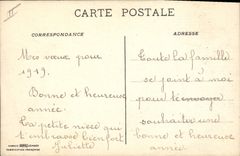 II
CARTE POSTALE
CORRESPONDANCE
ADRESSE
Mes vœux pour
1919.
Bonne et heureuse
année.
La petite nièce qui
t'embrasse bien fort
Juliette
Toute la famille
se joint à moi
pour te envoyer
souhaiter une
bonne et heureuse
année.